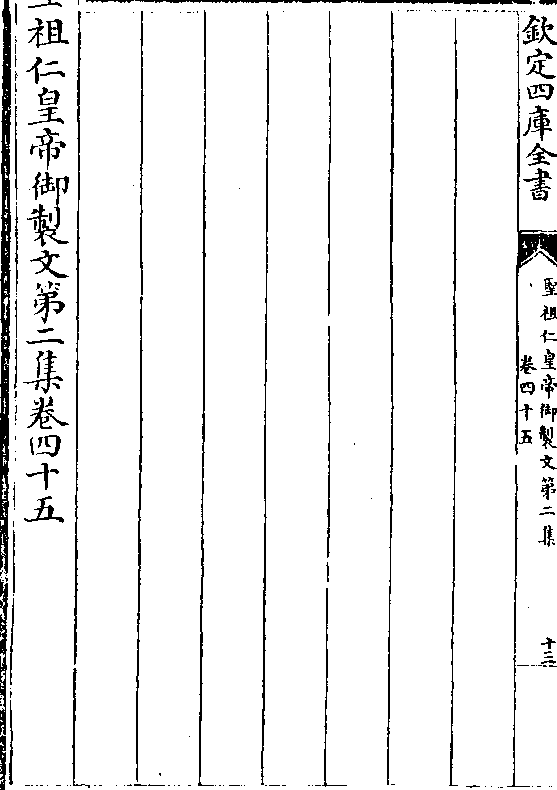 欽定四庫全書
聖祖仁皇帝御製文第二集
卷四十五
十三
祖仁皇帝御製文第二集卷四十五